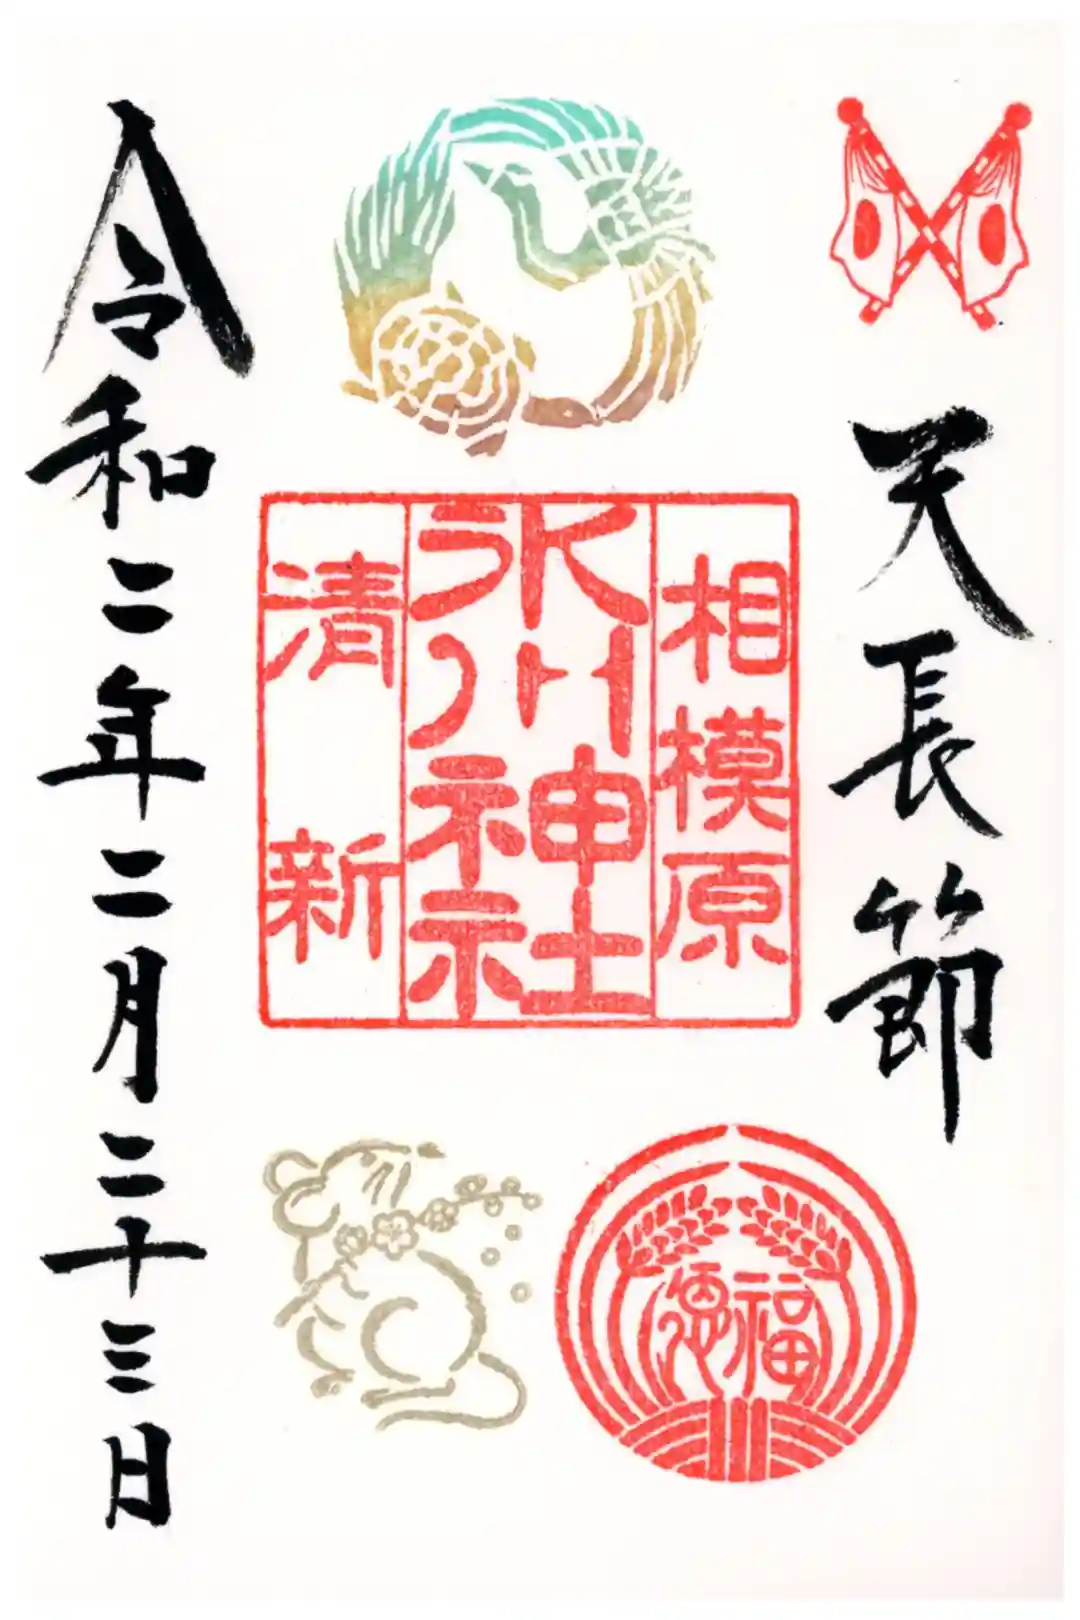 天長節
相模原
氷川神社
清新
福徳
令和二年二月二十三日